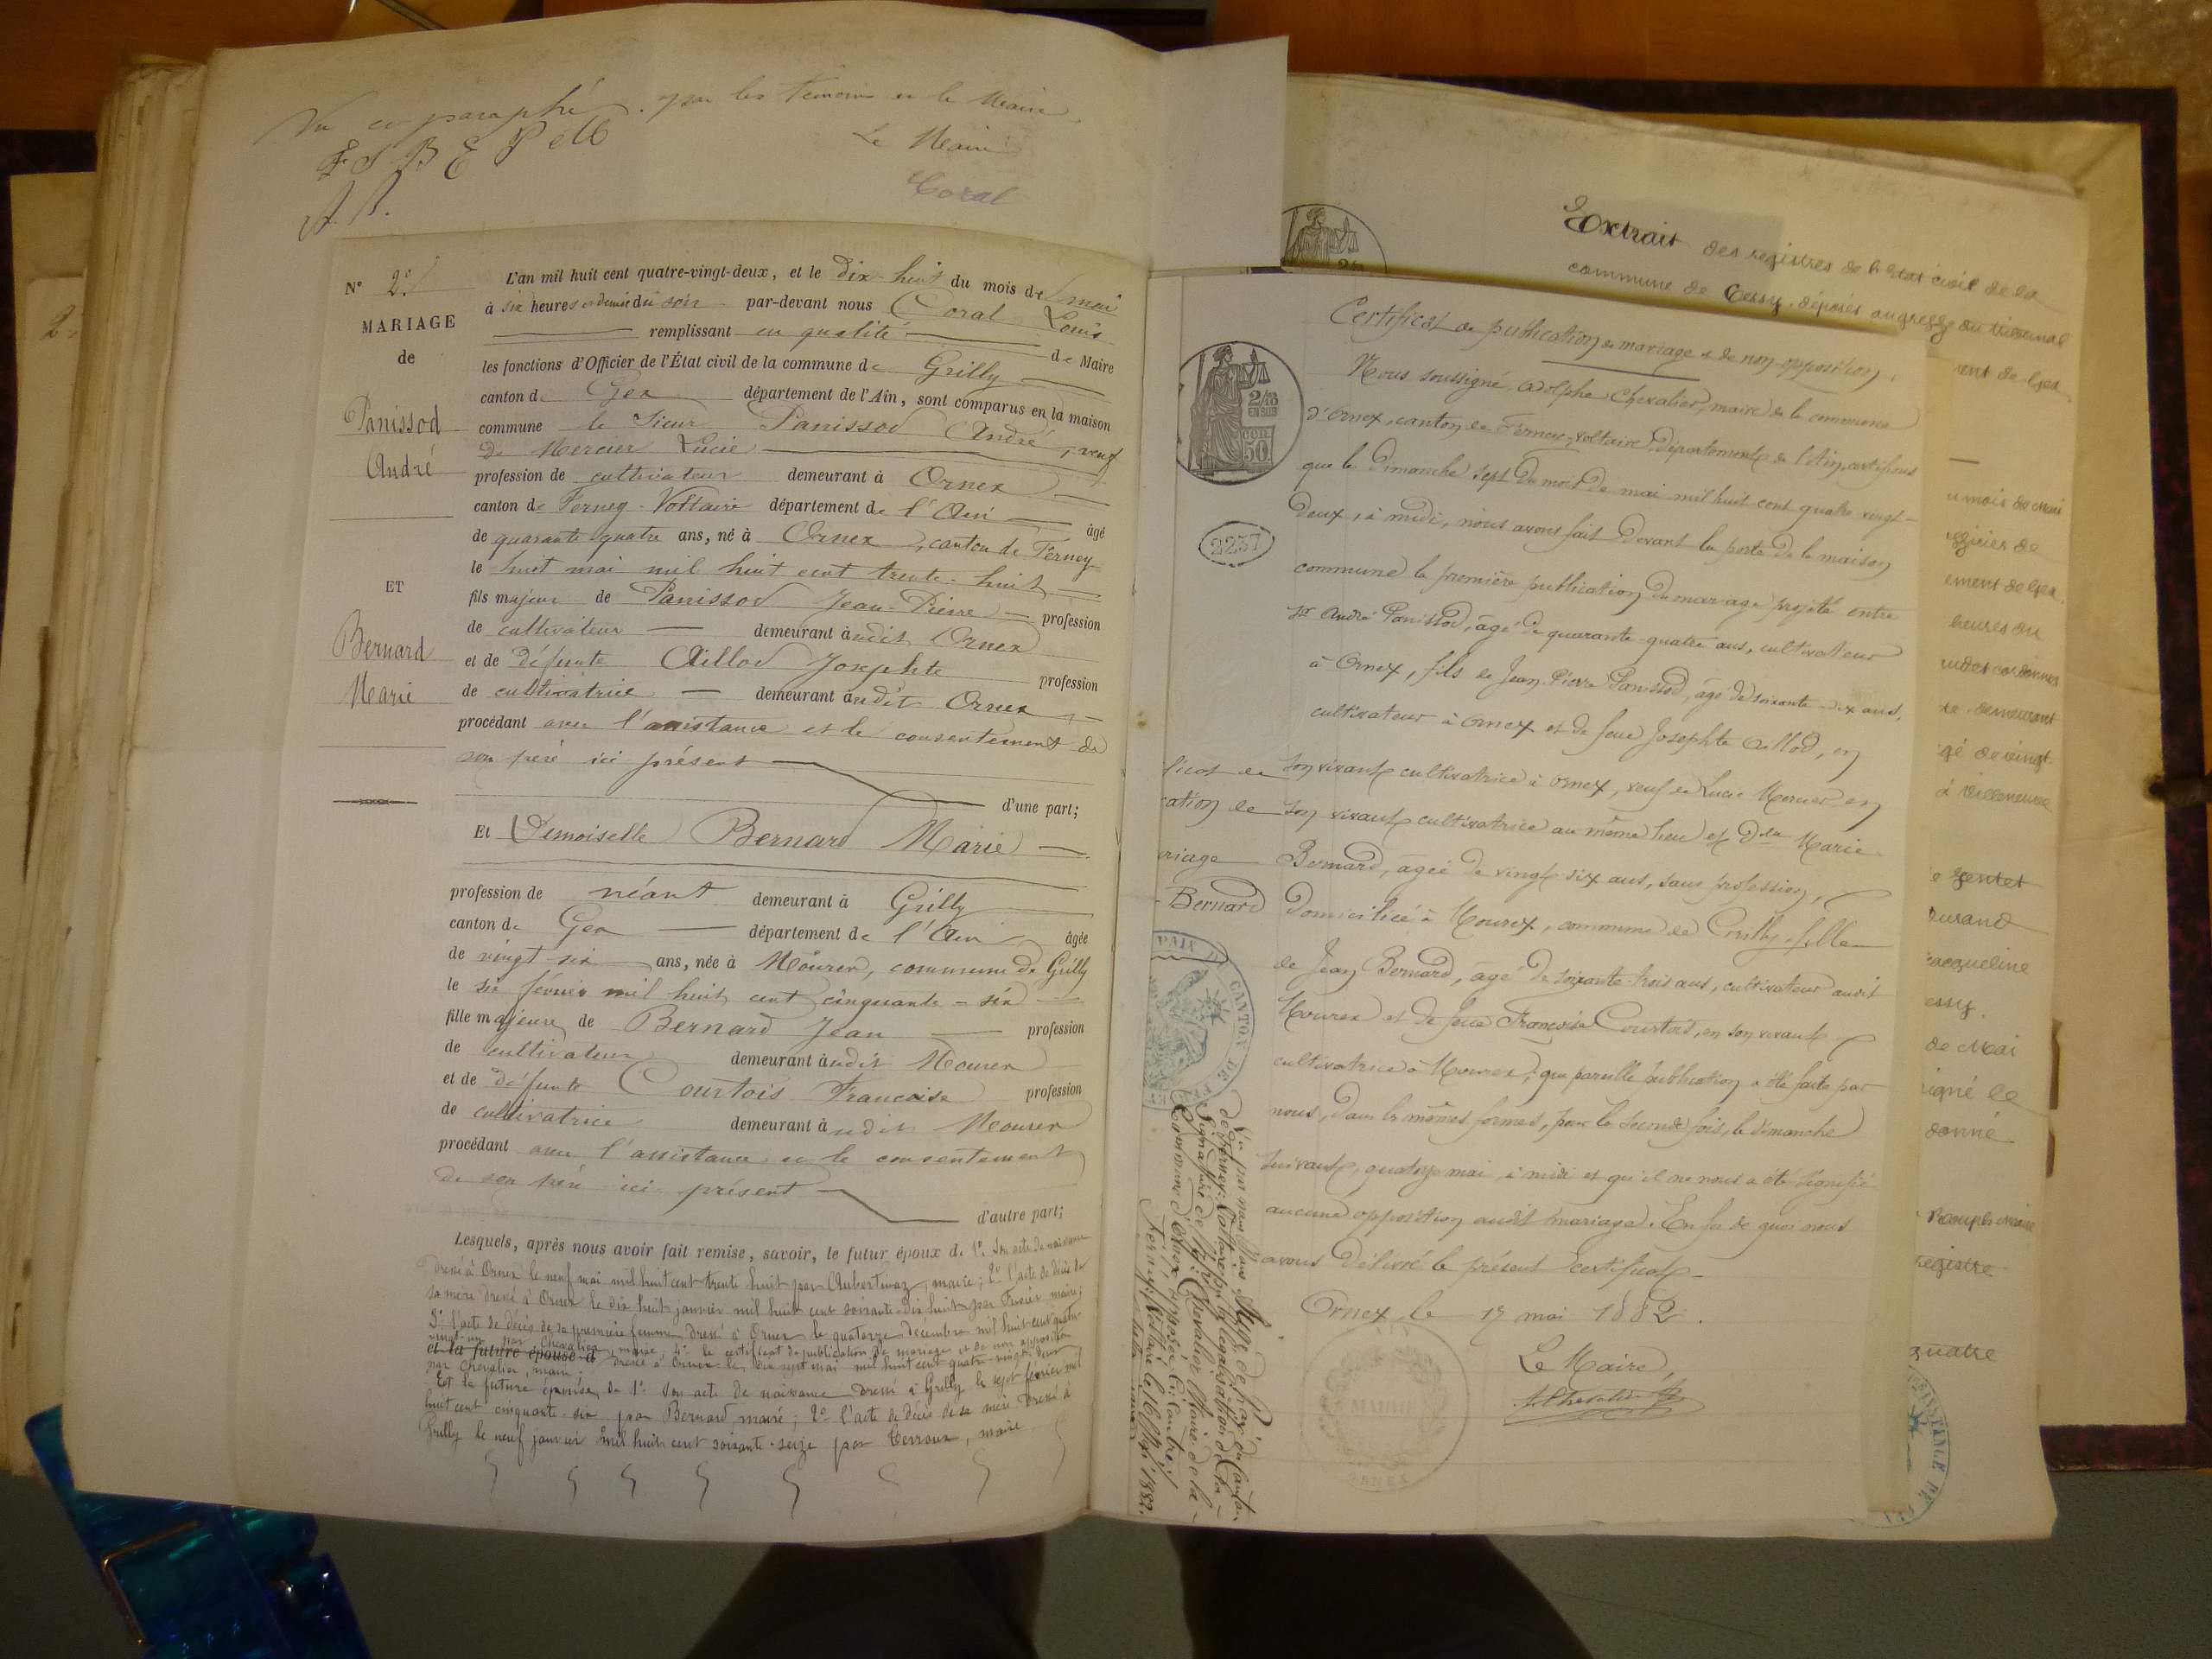 Vu et paraphé par les témoins et le Maire.
Le Maire
Coral
N° 2.
MARIAGE
de
Panissod
André
ET
Bernard
Marie
L'an mil huit cent quatre-vingt-deux, et le dix-huit du mois de mai
à six heures et demie du soir par-devant nous Coral Louis
remplissant en qualité de Maire
les fonctions d'Officier de l'État civil de la commune de Grilly
canton de Gex département de l'Ain, sont comparus en la maison
commune le Sieur Panissod André, veuf
de Mercier Lucie
profession de cultivateur demeurant à Ornex
canton de Ferney-Voltaire département de l'Ain âgé
de quarante quatre ans, né à Ornex, canton de Ferney
le huit mai mil huit cent trente-huit
fils majeur de Panissod Jean-Pierre profession
de cultivateur demeurant audit Ornex
et de défunte Aillod Josephte profession
de cultivatrice demeurant audit Ornex
procédant avec l'assistance et le consentement de
son père ici présent
d'une part;
Et Demoiselle Bernard Marie
profession de néant demeurant à Grilly
canton de Gex département de l'Ain âgée
de vingt six ans, née à Mourex, commune de Grilly
le six février mil huit cent cinquante-six
fille majeure de Bernard Jean profession
de cultivateur demeurant audit Mourex
et de défunte Courtois Francoise profession
de cultivatrice demeurant audit Mourex
procédant avec l'assistance et le consentement
de son père ici présent
d'autre part;
Lesquels, après nous avoir fait remise, savoir, le futur époux de 1° Son acte de naissance
dressé à Ornex le neuf mai mil huit cent trente huit par Aubertinaz, maire; 2° l'acte de décès de
sa mère dressé à Ornex le dix huit janvier mil huit cent soixante-dix huit par maire;
3° l'acte de décès de sa première femme dressé à Ornex le quatorze décembre mil huit cent quatre
vingt-un par Chevalier, maire; 4° le certificat de publication de mariage et de non opposition
et la future épouse d dressé à Ornex le dix sept mai mil huit cent quatre-vingt-deux
par Chevalier, maire;
Et la future épouse, de 1° son acte de naissance dressé à Grilly le sept février mil
huit cent cinquante-six par Bernard, maire; 2° l'acte de décès de sa mère dressé à
Grilly le neuf janvier mil huit cent soixante-seize par Terroux, maire
Extrait des registres de l'état civil de la
commune de Cessy, déposés au greffe du tribunal
Certificat de publication de mariage et de non-opposition.
2/10
EN SUS
CEN.
50
2257
Nous soussigné, Adolphe Chevalier, maire de la commune
d'Ornex, canton de Ferney-Voltaire, département de l'Ain, certifions
que le dimanche sept du mois de mai mil huit cent quatre-vingt-
deux, à midi, nous avons fait devant la porte de la maison
commune la première publication du mariage projeté entre
Sr André Panissod, âgé de quarante-quatre ans, cultivateur
à Ornex, fils de Jean-Pierre Panissod, âgé de soixante-dix ans,
cultivateur à Ornex et de feue Josephte Aillod, en
son vivant cultivatrice à Ornex, veuf de Lucie Mercier, en
son vivant cultivatrice au même lieu et Dlle Marie
Bernard, âgée de vingt-six ans, sans profession,
domiciliée à Mourex, commune de Grilly, fille
de Jean Bernard, âgé de soixante-trois ans, cultivateur audit
Mourex et de feue Françoise Courtois, en son vivant
cultivatrice à Mourex; que pareille publication a été faite par
nous, dans les mêmes formes, pour la seconde fois, le dimanche
suivant, quatorze mai, à midi et qu'il ne nous a été signifié
aucune opposition audit mariage. En foi de quoi nous
avons délivré le présent certificat.
Ornex, le 17 mai 1882.
Le Maire,
AChevalier
MAIRIE
ORNEX
ficat de
cation de
riage
-Bernard
PAIX DU CANTON DE FERNEY
Vu par nous Juge de Paix du canton
de Ferney-Voltaire pour légalisation de la
signature de Mr Chevalier Maire de la
Commune d'Ornex apposée ci-contre.
ent de Gex
u mois de Mai
officier de
ement de Gex.
heures du
re demeurant
gé de vingt
à Villeneuve
e
Durand
acqueline
essy.
de Mai
igné le
donné
Maire
registre
quatre
INSTANCE DE